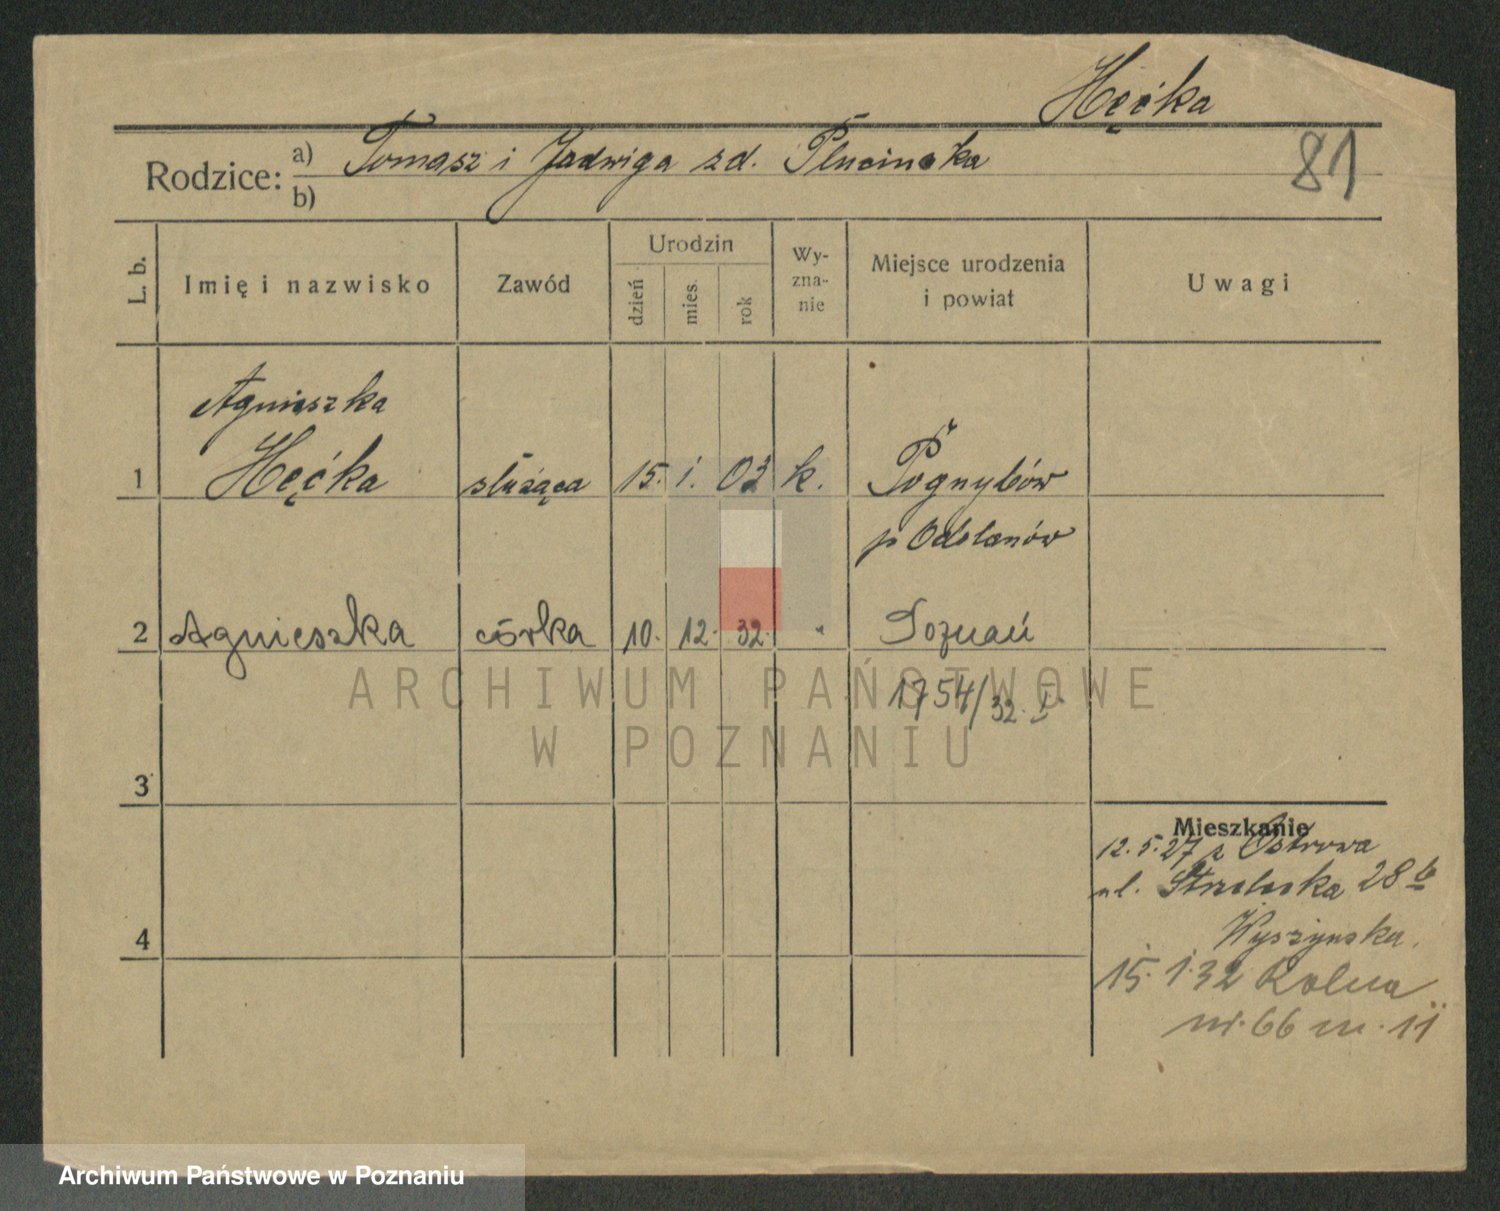 Hęćka
81
Rodzice: a) Tomasz i Jadwiga zd. Plucinska
b)
L. b. Imię i nazwisko Zawód Urodzin dzień mies. rok Wy-zna-nie Miejsce urodzenia i powiat Uwagi
Agnieszka
1 Hęćka służąca 15. 1. 03 k. Pogrzybów
p Odolanów
2 Agnieszka córka 10. 12. 32. " Poznań
1754/32. I.
3
Mieszkanie
12.5.27 z Ostrowa
ul. Strzelecka 28 b
Wyszynska.
4
15.1.32 Rolna
nr. 66 m. 11
ARCHIWUM PAŃSTWOWE
W POZNANIU
Archiwum Państwowe w Poznaniu